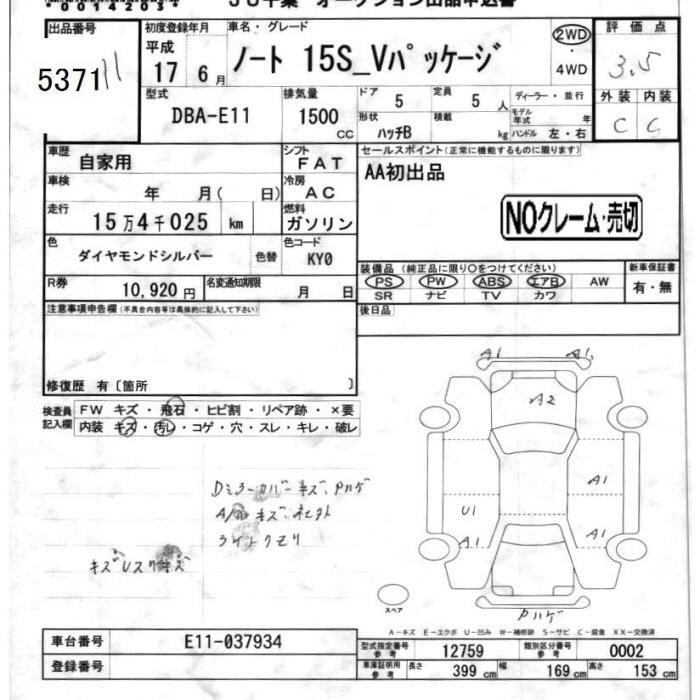 出品番号 初度登録年月 車名・グレード 2WD・4WD 評価点
5371 平成 17年 6月 ノート 15S_Vパッケージ 3.5
型式 排気量 ドア 5 定員 5人 ディーラー・並行 外装 内装
DBA-E11 1500cc 形状 ハッチB 積載 kg モデル年式 年 ハンドル 左・右 C C
車歴 自家用 シフト FAT セールスポイント(正常に機能するものに限ります)
車検 年 月( 日) 冷房 AC AA初出品
走行 15万4千025 km 燃料 ガソリン NOクレーム・売切
色 ダイヤモンドシルバー 色替 色コード KY0
装備品(純正品に限り○をつけてください) 新車保証書
R券 10,920円 名変通知期限 月 日 PS PW ABS エアB AW 有・無
SR ナビ TV カワ
注意事項申告欄(不具合内容等は具体的に記入して下さい) 後日品
A1 A1
A2
修復歴 有〔箇所 〕
検査員記入欄 FW キズ・飛石・ヒビ割・リペア跡・×要
内装 キズ・汚レ・コゲ・穴・スレ・キレ・破レ
A1
Dミラーカバーキズ、Pハゲ
U1 A1
ライトクモリ
A1
スペア
Pハゲ
A-キズ E-エクボ U-凹み W-補修跡 S-サビ C-腐食 XX-交換済
車台番号 E11-037934 型式指定番号 参考 12759 類別区分番号 参考 0002
登録番号 車庫証明用 参考 長さ 399cm 幅 169cm 高さ 153cm